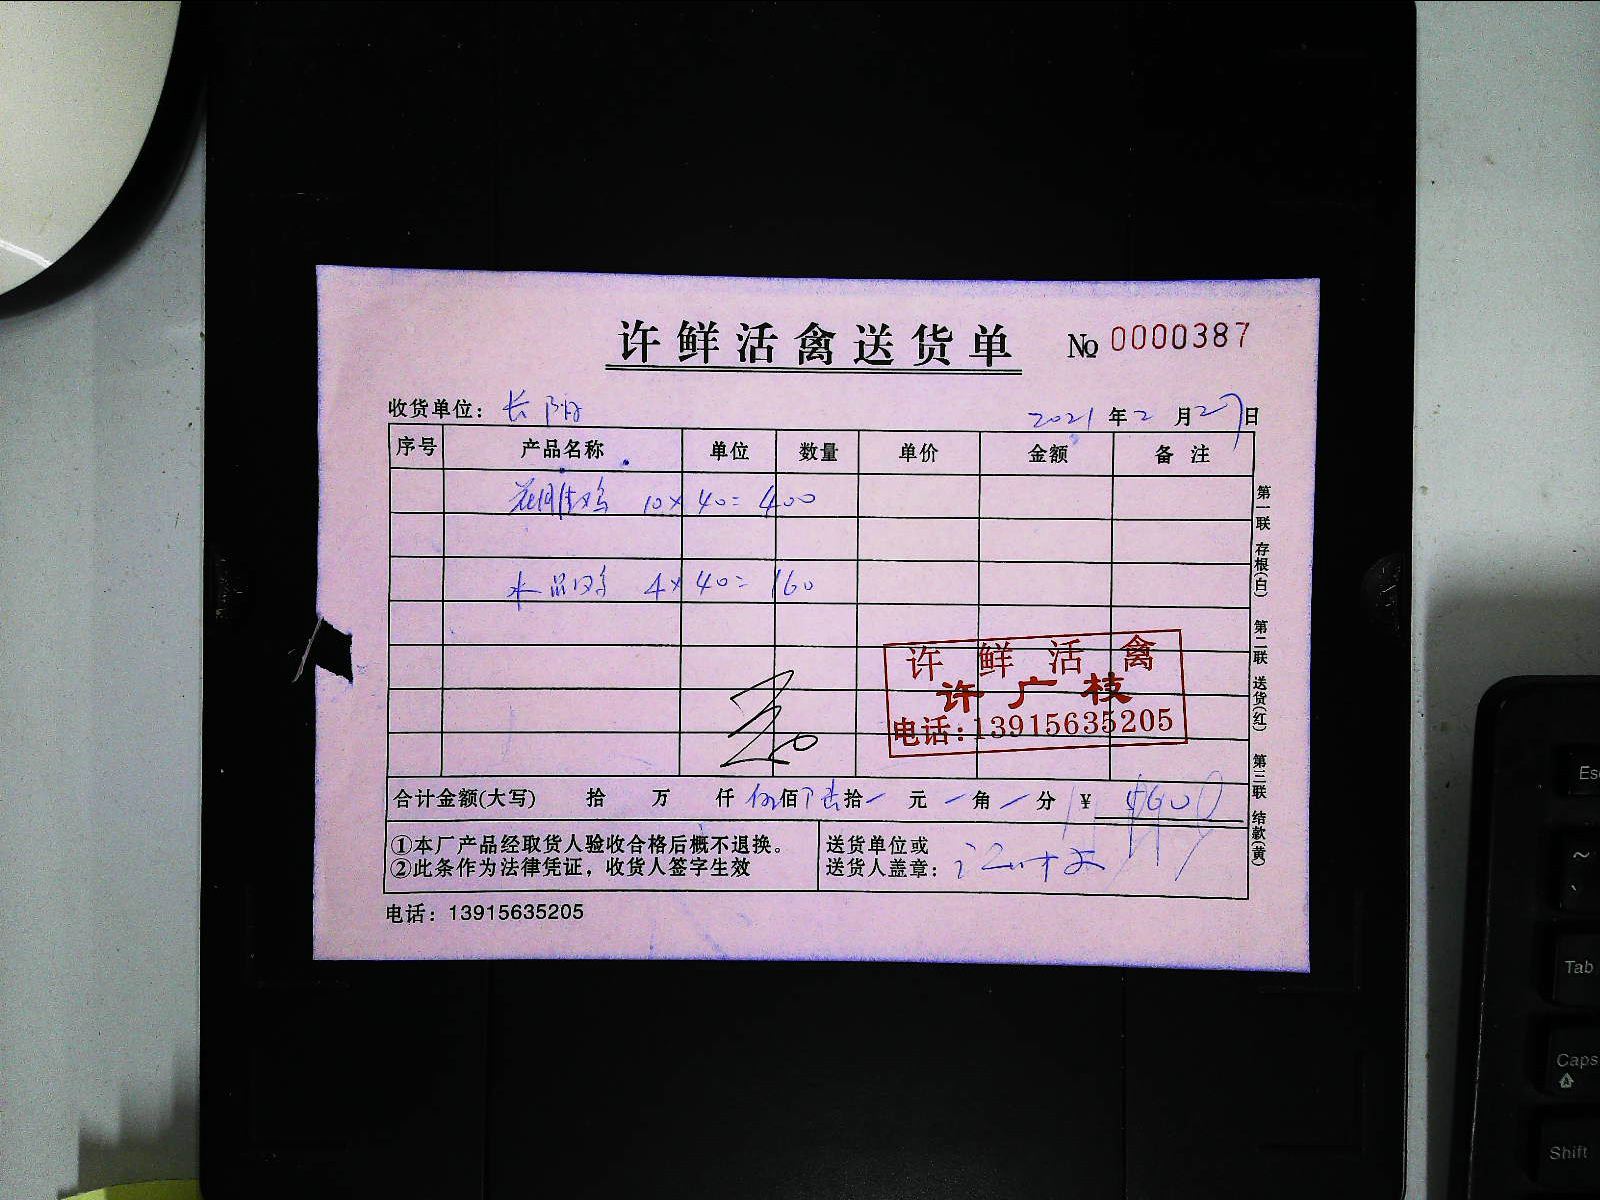 许鲜活禽送货单 № 0000387
收货单位： 长阳 2021 年 2 月 27 日
序号 产品名称 单位 数量 单价 金额 备注
10×40=400
水晶鸡 4×40=160
许鲜活禽
许广枝
电话:13915635205
合计金额(大写) 拾 万 仟 伍佰 拾 元 角 分 ¥
①本厂产品经取货人验收合格后概不退换。
②此条作为法律凭证，收货人签字生效
送货单位或
送货人盖章：
电话：13915635205
第一联 存根(白) 第二联 送货(红) 第三联 结款(黄)
Esc
~
Tab
Caps
Shift